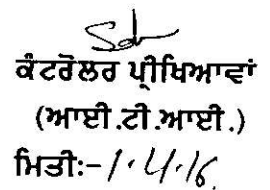 Sd/-
ਕੰਟਰੋਲਰ ਪ੍ਰੀਖਿਆਵਾਂ
(ਆਈ.ਟੀ.ਆਈ.)
ਮਿਤੀ:-1.4.16